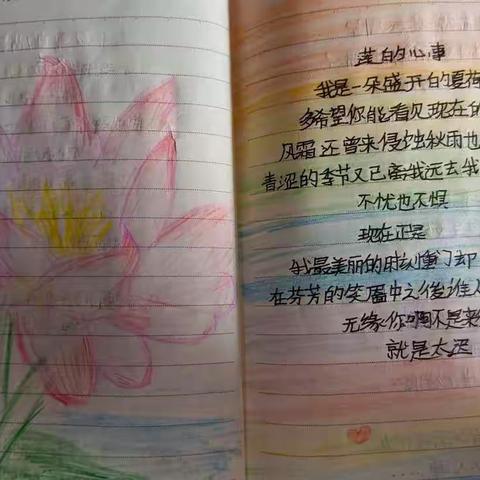 莲的心事
我是一朵盛开的夏荷
多希望你能看见现在的
风霜还曾来侵蚀秋雨也
青涩的季节又已离我远去我
不忧也不惧
现在正是
我最美丽的时刻重门却
在芬芳的笑靥中之後谁人
无缘你啊不是来
就是太迟